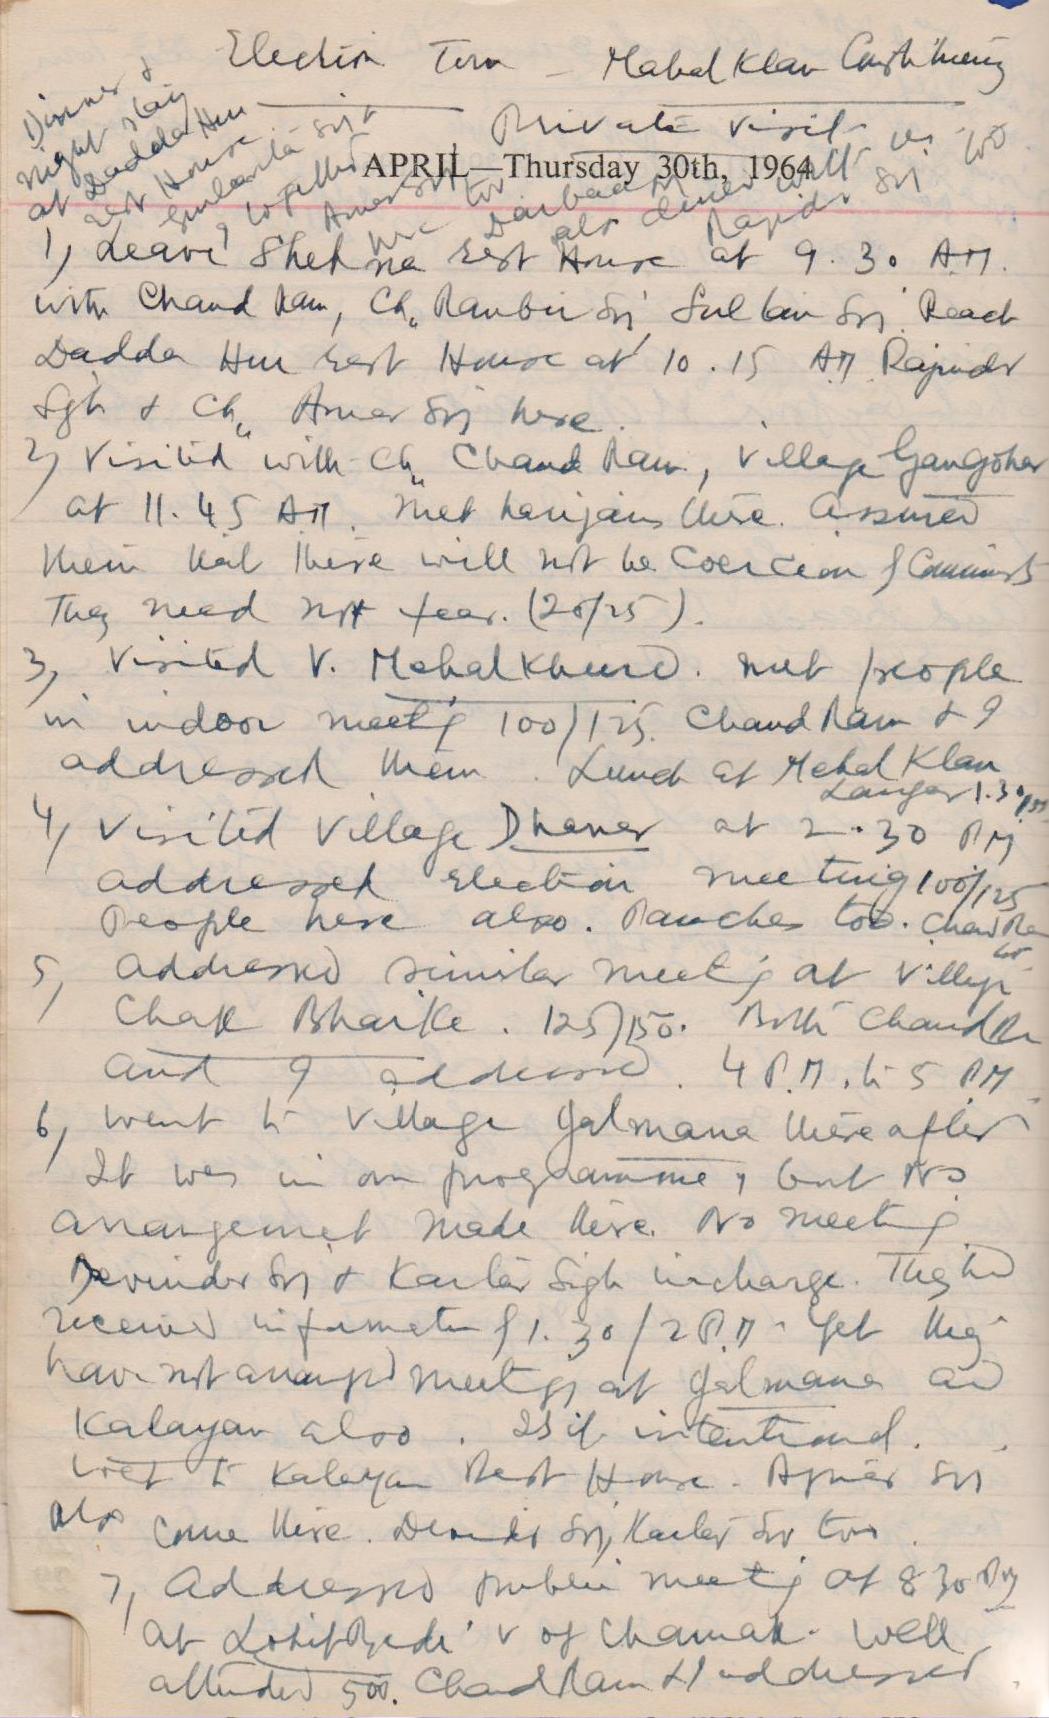 Election Tour - Mahal Klan Constituency
Private visit
Dinner &
night stay
at Dadda Hur
rest House
APRIL—Thursday 30th, 1964
1) Leave Shehna rest House at 9.30 AM.
with Chand Ram, Ch. Ranbir Sgj Sultan Sgj. Reach
Dadda Hur rest House at 10.15 AM Rajinder
Sgh & Ch. Amar Sgj here.
2) Visited with Ch. Chand Ram, Village Gangohar
at 11.45 AM. Met harijans there. Assured
them that there will not be Coercion of Communists
They need not fear. (20/25).
3) Visited V. Mehal Khurd. Met people
in indoor meetig 100/125. Chand Ram & I
addressed them. Lunch at Mehal Klan
Langar 1.30 PM
4) Visited Village Dhaner at 2.30 PM
addressed election meeting 100/125
People here also. Panches too. Chand Ram
too
5) Addressed similar meetig at Village
Chak Bhaike. 125/150. Both Chand Ram
and I addressed. 4 P.M. to 5 PM
6) Went to Village Galmana thereafter
It was in our programme, but No
arrangement made there. No meeting
Devinder Sgj & Kartar Sigh incharge. They had
received information of 1.30/2 P.M. Yet they
have not arranged meetigs at Galmana and
Kalayan also. Is it intentional.
Went to Kalayan Rest House. Ajmer Sgj
also come there. Devinder Sgj, Kartar Sgj too.
7) Addressed public meetig at 8 30 PM
at V of Chamak. Well
attended 500. Chand Ram & I addressed.